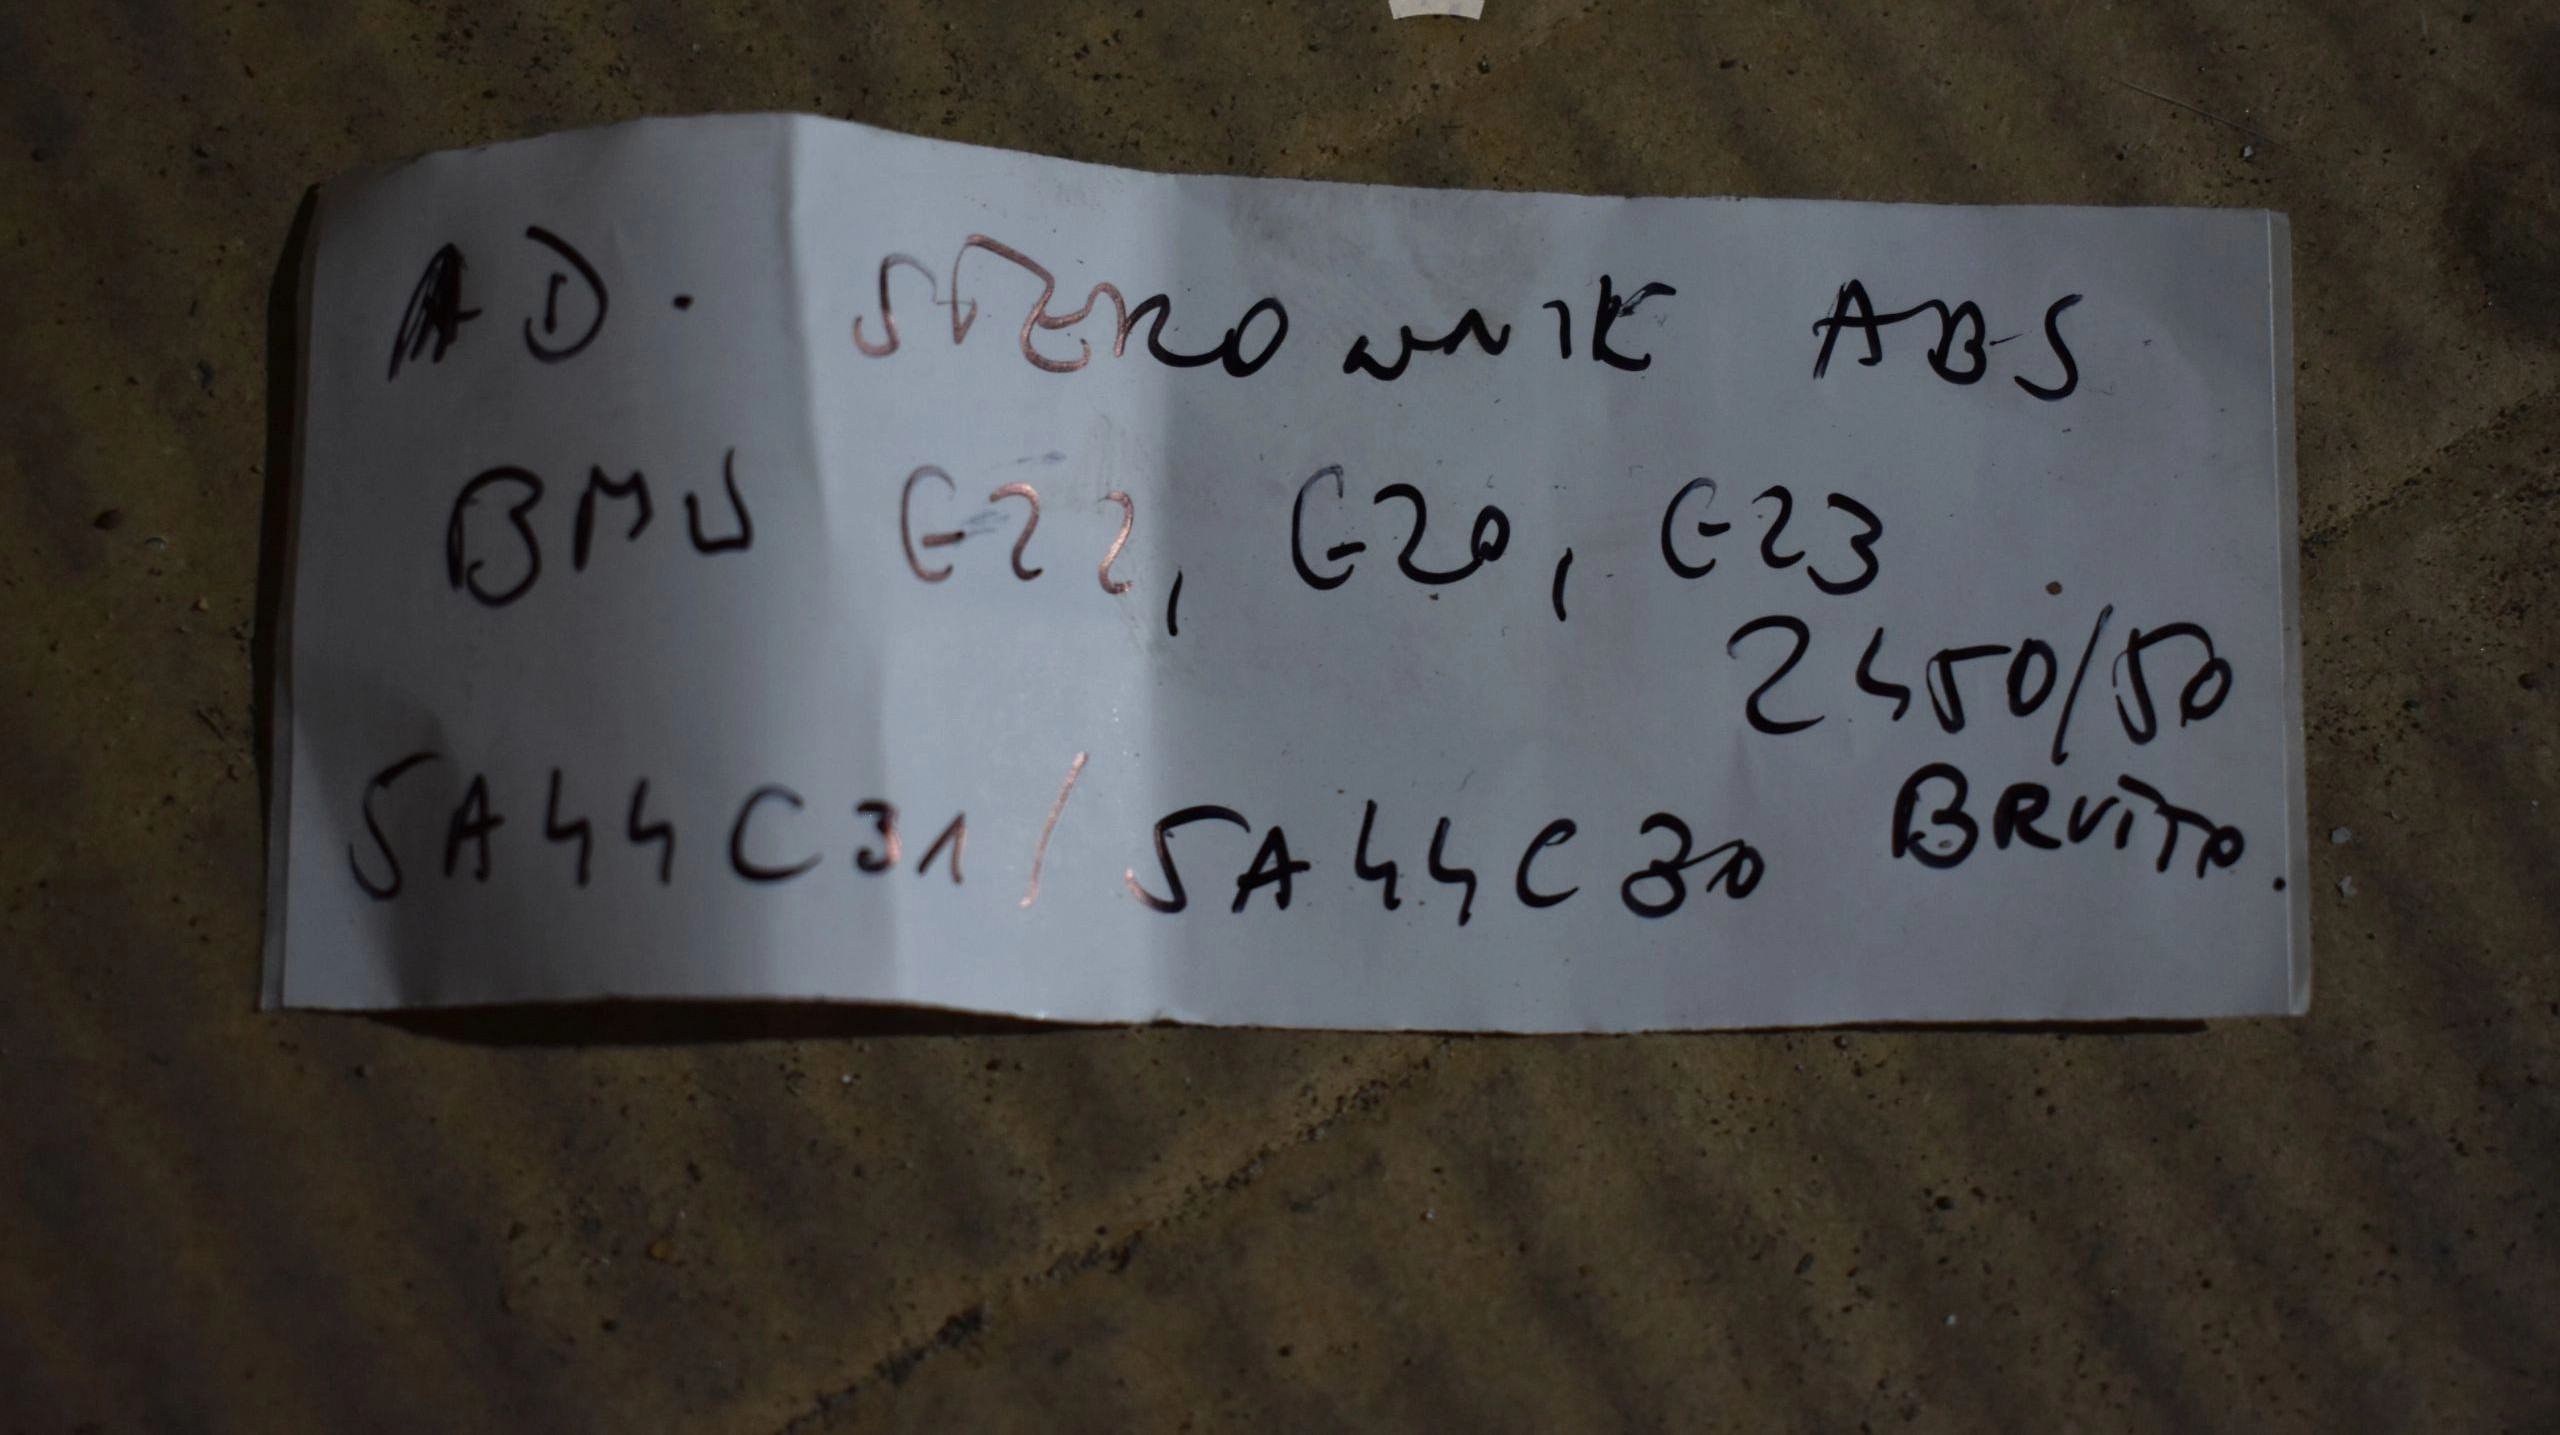 AD. STEROWNIK ABS
BMW G22, G20, G23
2450/50
BRUTTO.
5A44C31/5A44C30